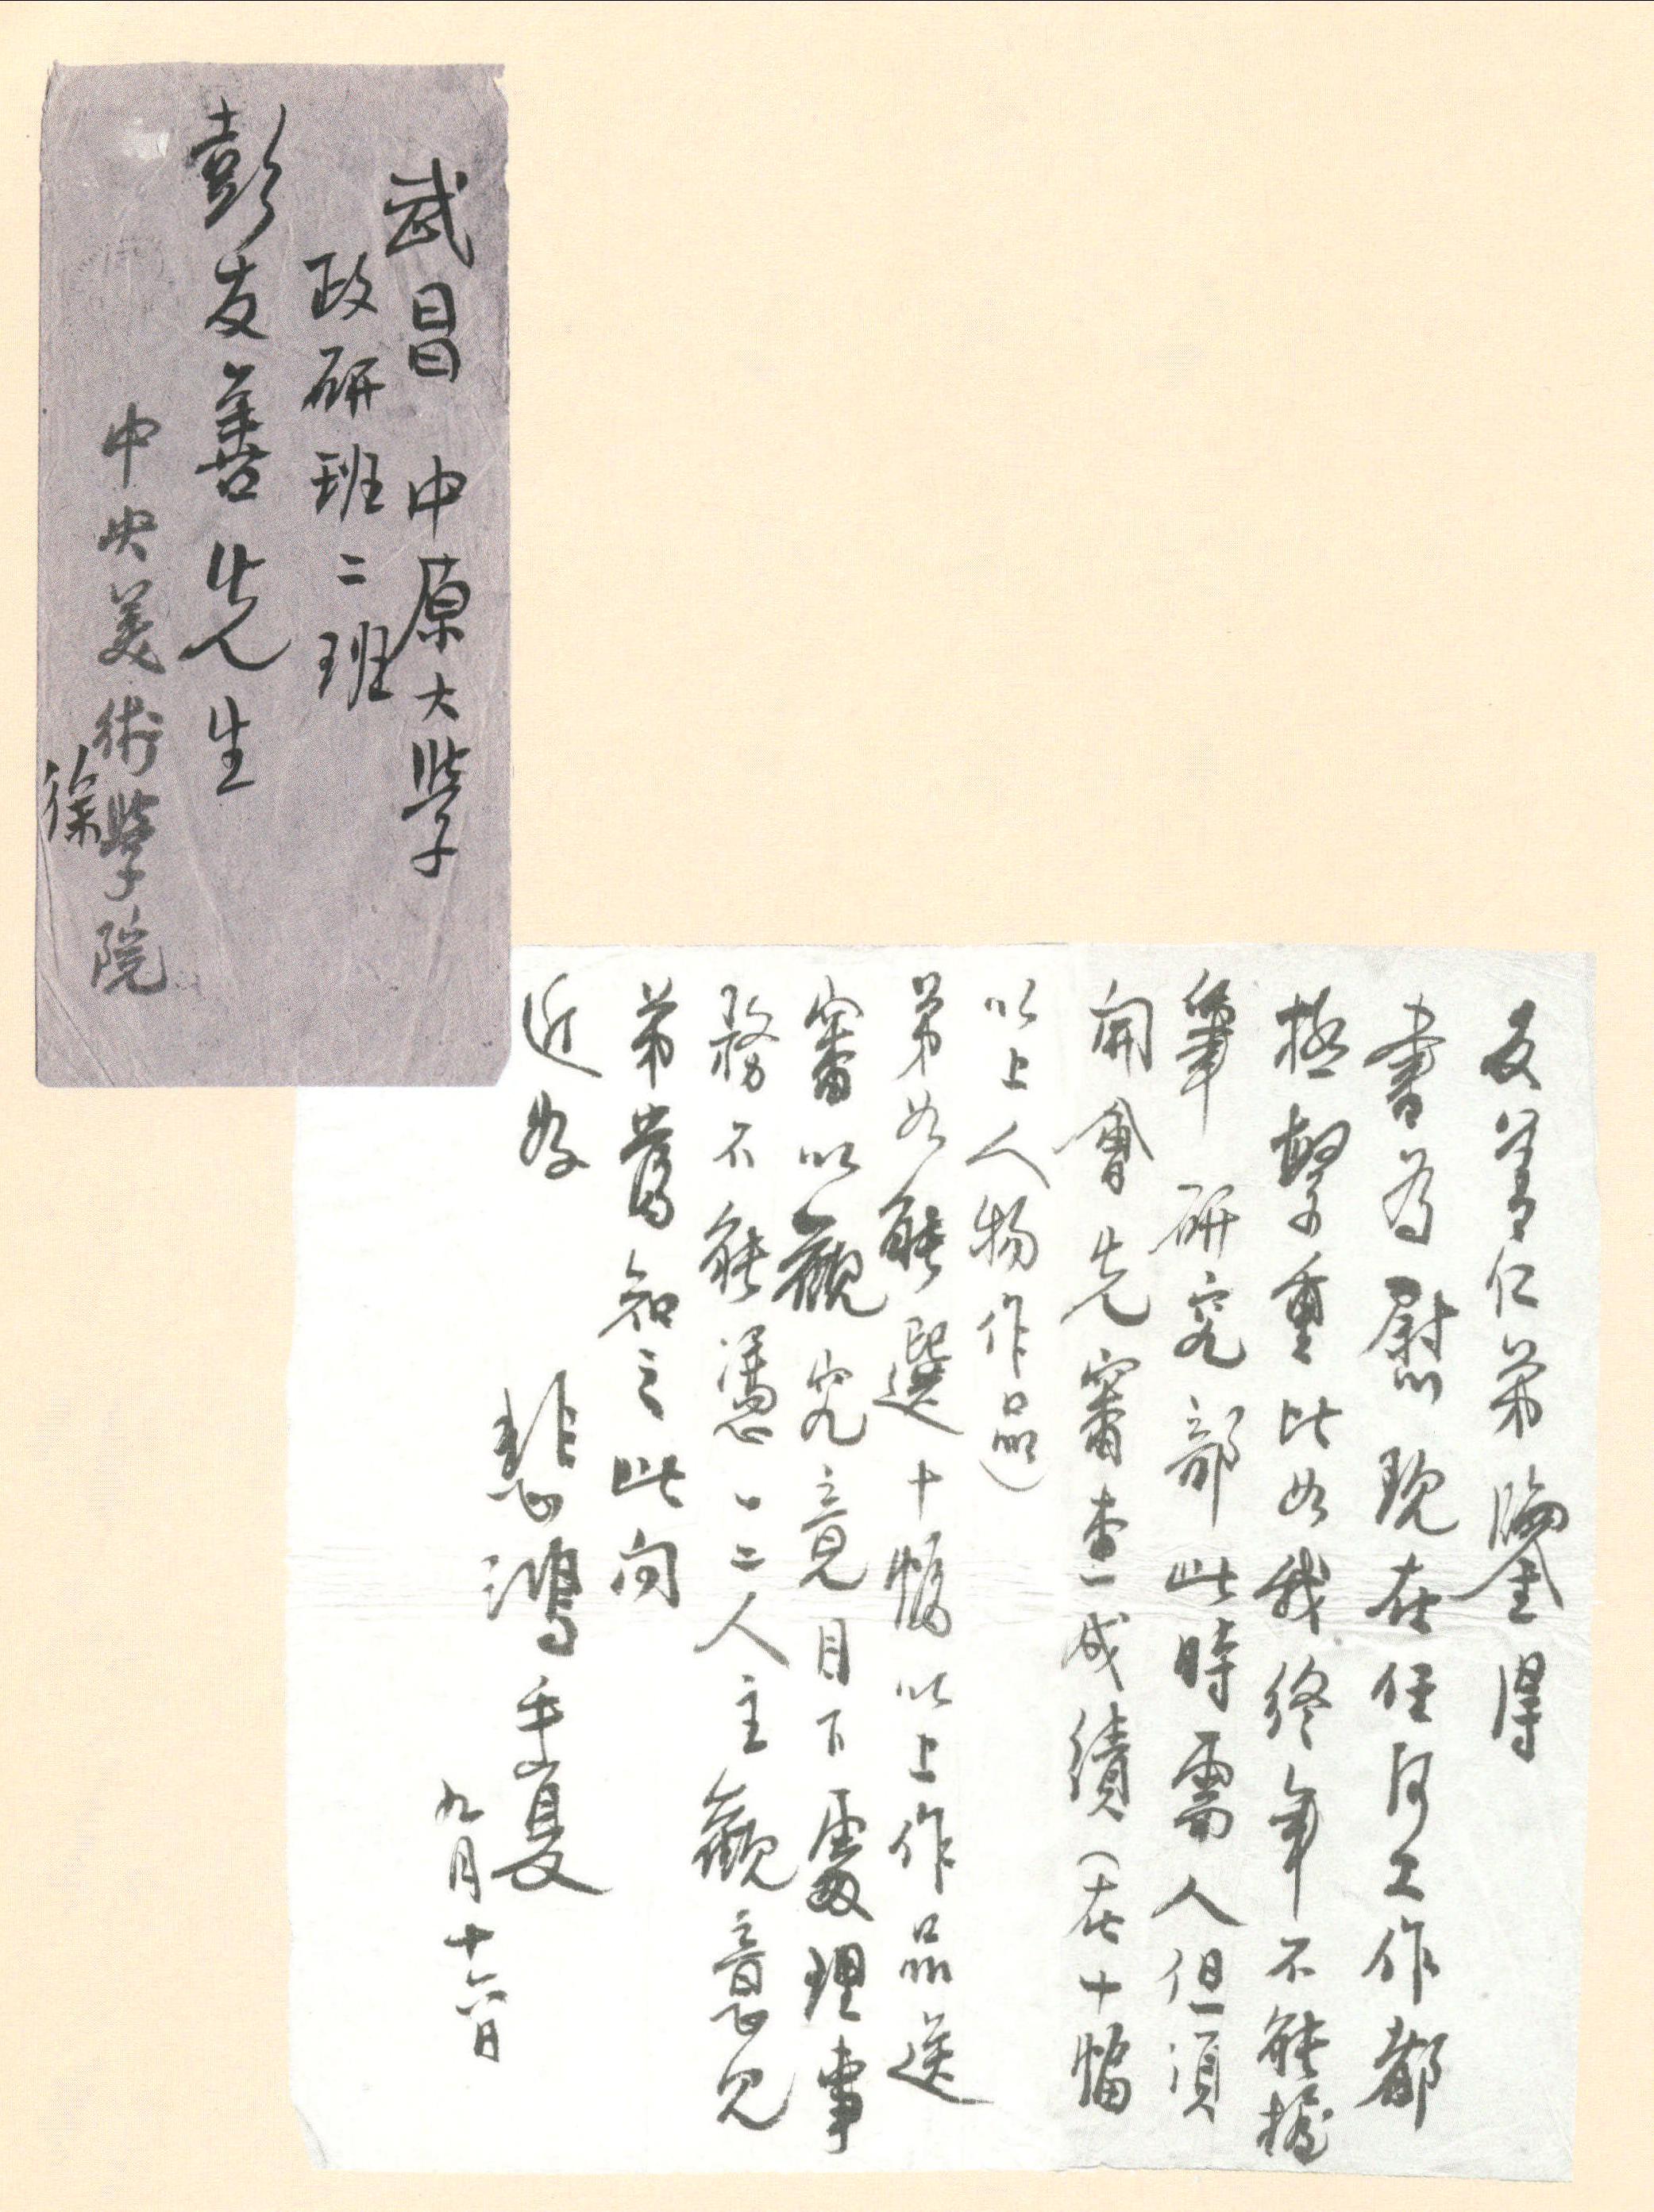 武昌 中原大學
政研班二班
彭友善先生
中央美術學院
徐
友善仁弟鑒得
書為慰現在任何工作都
極繁重比如我終年不能握
筆 研究部此時需人但須
開會先審查一成績（在十幅
以上人物作品）
弟如能選十幅以上作品送
審以觀究竟目下處理事
務不能憑一二人主觀意見
弟當知之此问
近好
悲鴻手复
九月十六日